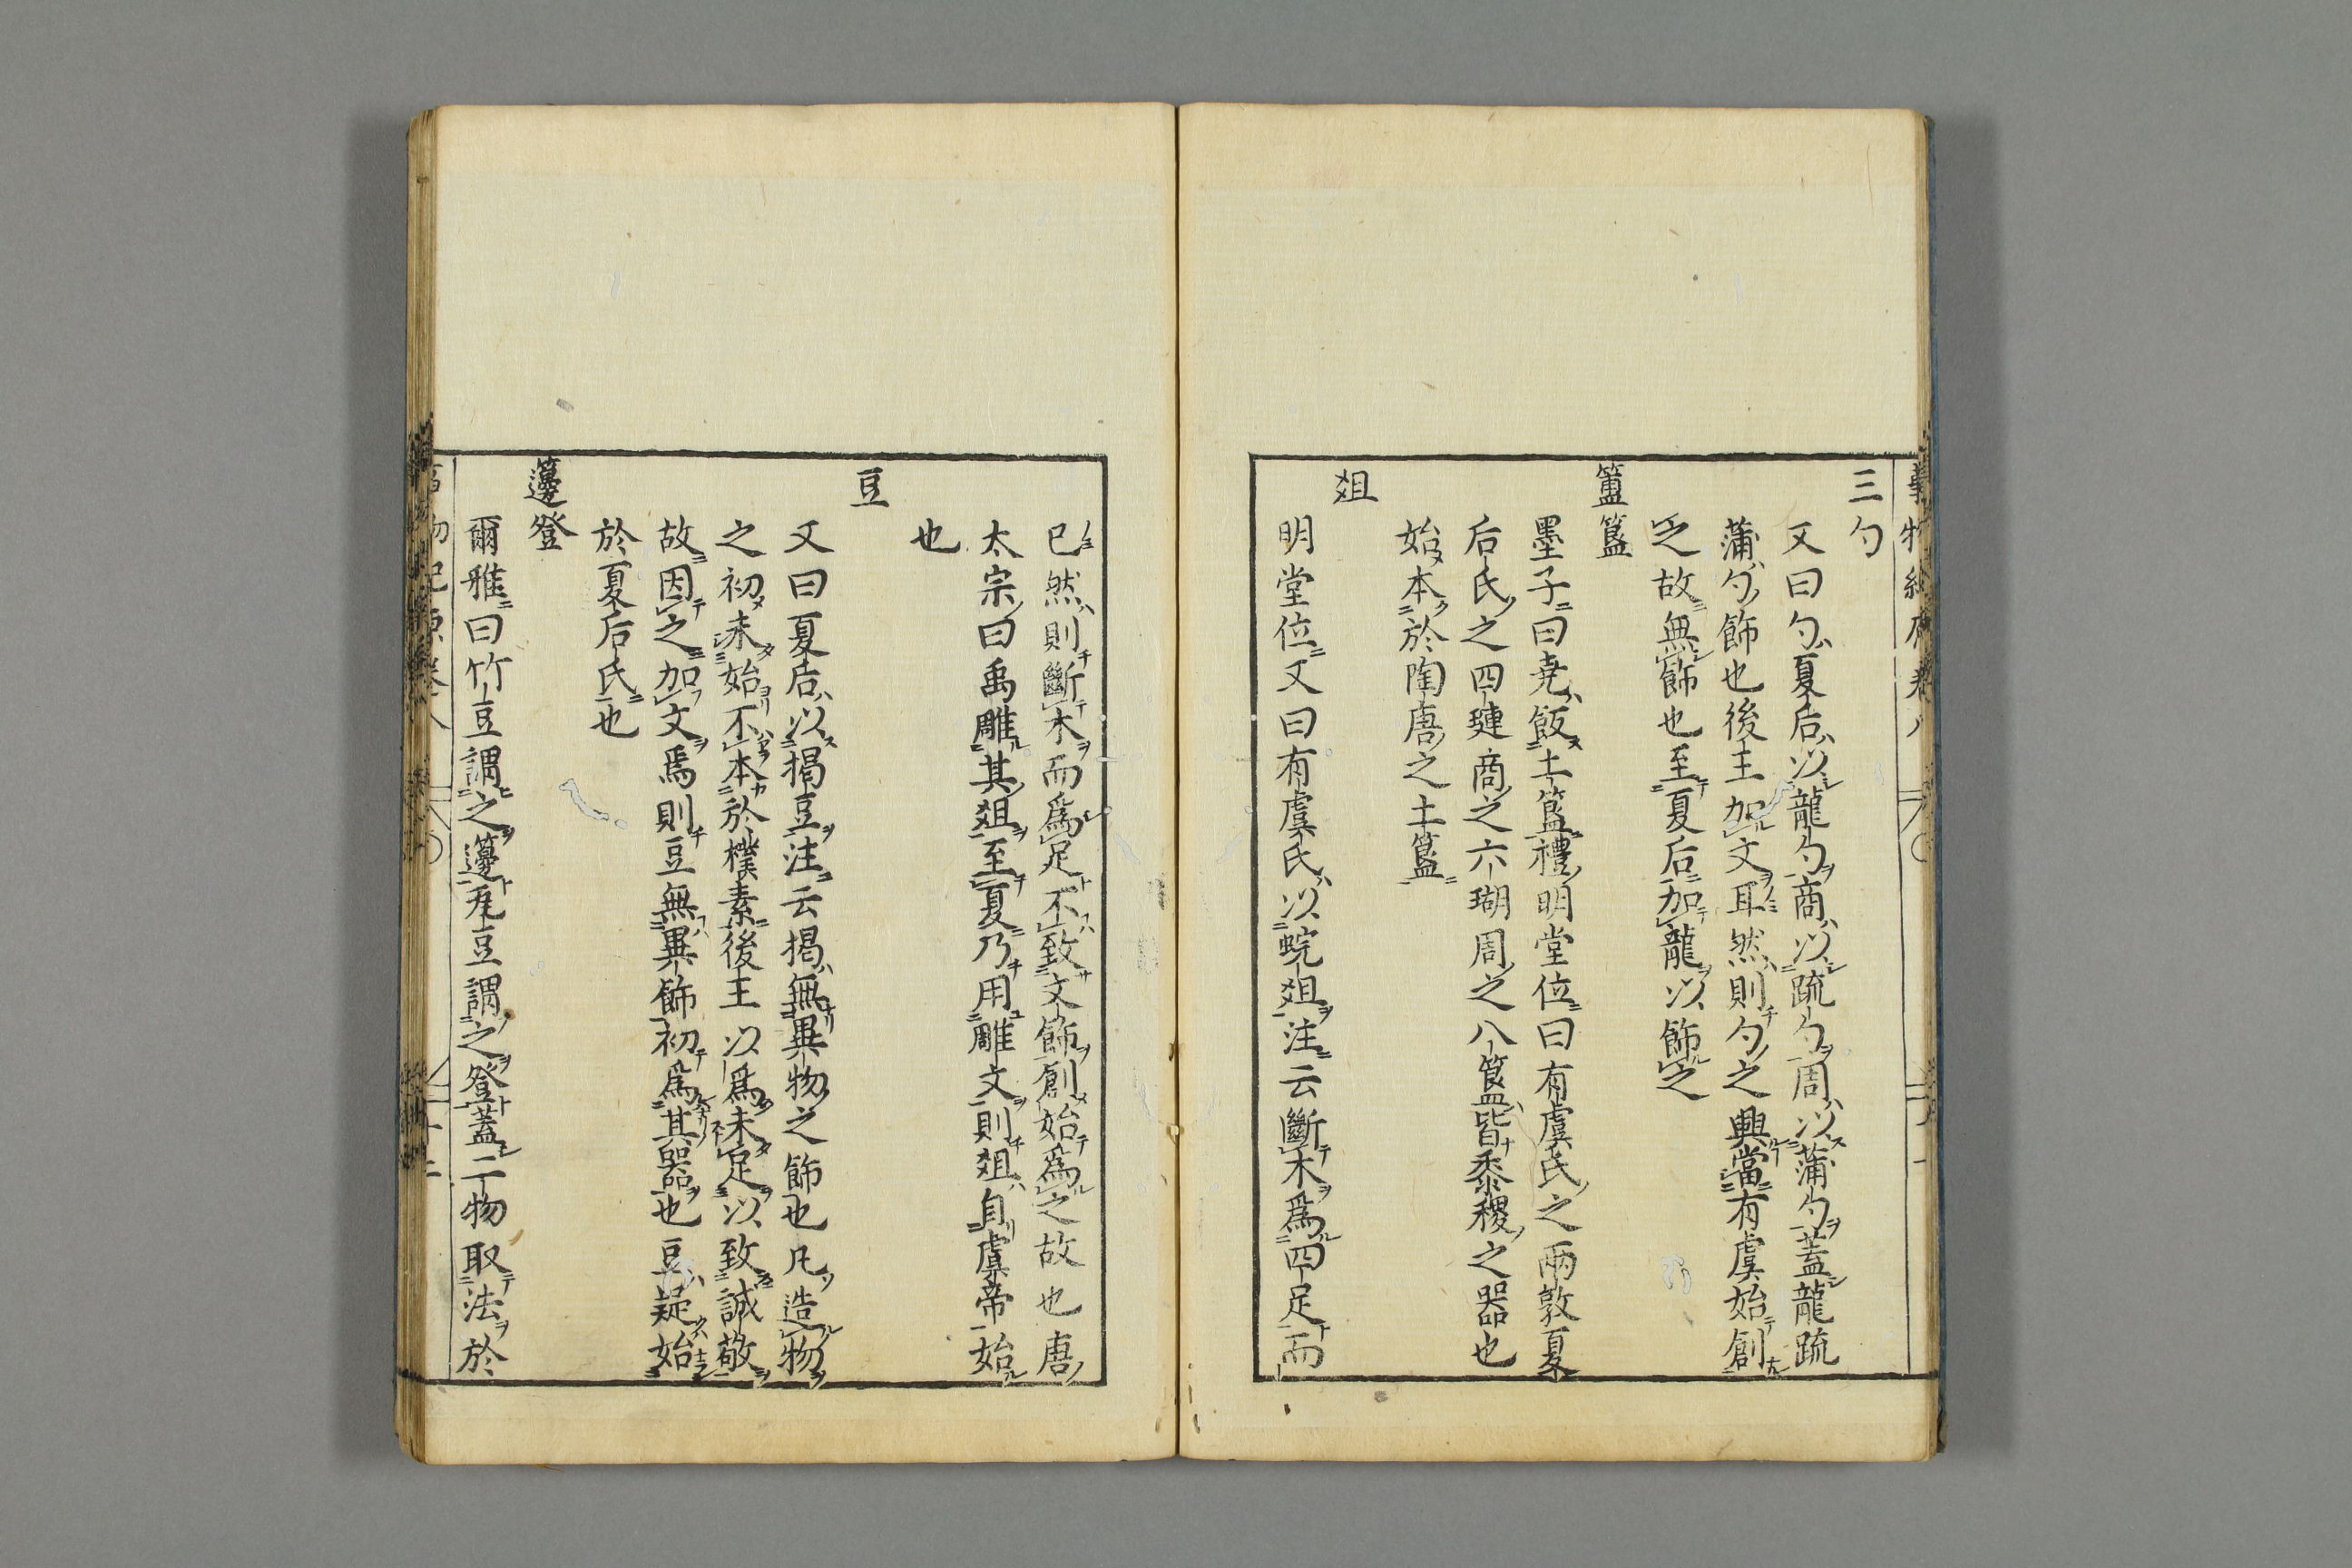 三勺
又曰勺夏后以龍勺商以疏勺周以蒲勺蓋龍疏
蒲勺飾也後王加文耳然則勺之興當有虞始創
之故無飾也至夏后加龍以飾之
簠簋
墨子曰堯飯土簋禮明堂位曰有虞氏之兩敦夏
后氏之四璉商之六瑚周之八簋皆黍稷之器也
始本於陶唐之土簋
爼
明堂位又曰有虞氏以梡爼注云斷木爲四足而
已然則斷木而爲足不致文飾創始爲之故也唐
太宗曰禹雕其爼至夏乃用雕文則爼自虞帝始
也
豆
又曰夏后以揭豆注云揭無異物之飾也凡造物
之初未始不本於樸素後王以爲未足以致誠敬
故因之加文焉則豆無異飾初爲其器也豆疑始
於夏后氏也
籩登
爾雅曰竹豆謂之籩瓦豆謂之登蓋二物取法於